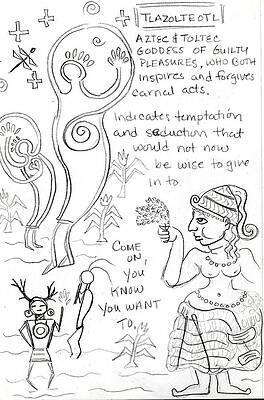 TLAZOLTEOTL
AZTEC & TOLTEC
GODDESS OF GUILTY
PLEASURES, WHO BOTH
INSPIRES and FORGIVES
carnal acts.
Indicates temptation
and seduction that
would not now
be wise to give
in to
COME
ON,
YOU
KNOW
YOU WANT
TO.